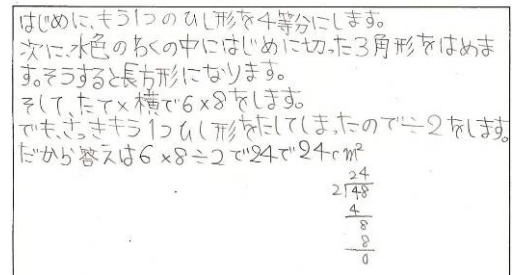 はじめに、もう1つのひし形を4等分にします。
次に、水色のわくの中にはじめに切った3角形をはめま
す。そうすると長方形になります。
そして、たて×横で6×8をします。
でも、さっきもう1つひし形をたしてしまったので÷2をします。
だから答えは6×8÷2で24で24cm²
24
2)48
4
8
8
0